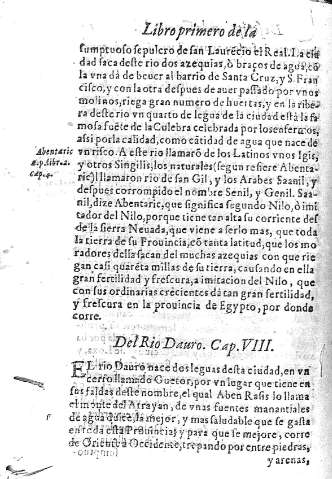 Libro primero de la
sumptuoso sepulcro de san Laurēcio el Real. La ciu
dad saca deste rio dos azequias, ò braços de agua, cō
la vna dà de beuer al barrio de Santa Cruz, y S. Fran
cisco, y con la otra despues de auer passado por vnos
molinos, riega gran numero de huertas, y en la ribe
ra deste rio vn quarto de legua de la ciudad està la fa
mosa fuēte de la Culebra celebrada por los enfermos,
assi por la calidad, como cātidad de agua que nace de
Abentaric
1.p. libr.2.
cap.4.
vn risco. A este rio llamarō de los Latinos vnos Igis,
y otros Singilis, los naturales (segun refiere Abenta
ric) llamaron rio de san Gil, y los Arabes Saanil, y
despues corrompido el nombre Senil, y Genil. Saa
nil, dize Abentaric, que significa segundo Nilo, ò imi
tador del Nilo, porque tiene tan alta su corriente des
de la sierra Neuada, que viene a serlo mas, que toda
la tierra de su Prouincia, cō tanta latitud, que los mo
radores della sacan del muchas azequias con que rie
gan casi quarēta millas de su tierra, causando en ella
gran fertilidad y frescura, a imitacion del Nilo, que
con sus ordinarias crecientes dà tan gran fertilidad,
y frescura en la prouincia de Egypto, por donde
corre.
Del Rio Dauro. Cap. VIII.
EL rio Dauro nace dos leguas desta ciudad, en vn
cerro llamado Guetor, por vn lugar que tiene en
sus faldas deste nombre, el qual Aben Rasis lo llama
el monte del Arrayan, de vnas fuentes manantiales
de agua dulce, la mejor, y mas saludable que se gasta
en toda esta Prouincia; y para que se mejore, corre
de Oriente a Occidente, trepando por entre piedras,
y arenas,